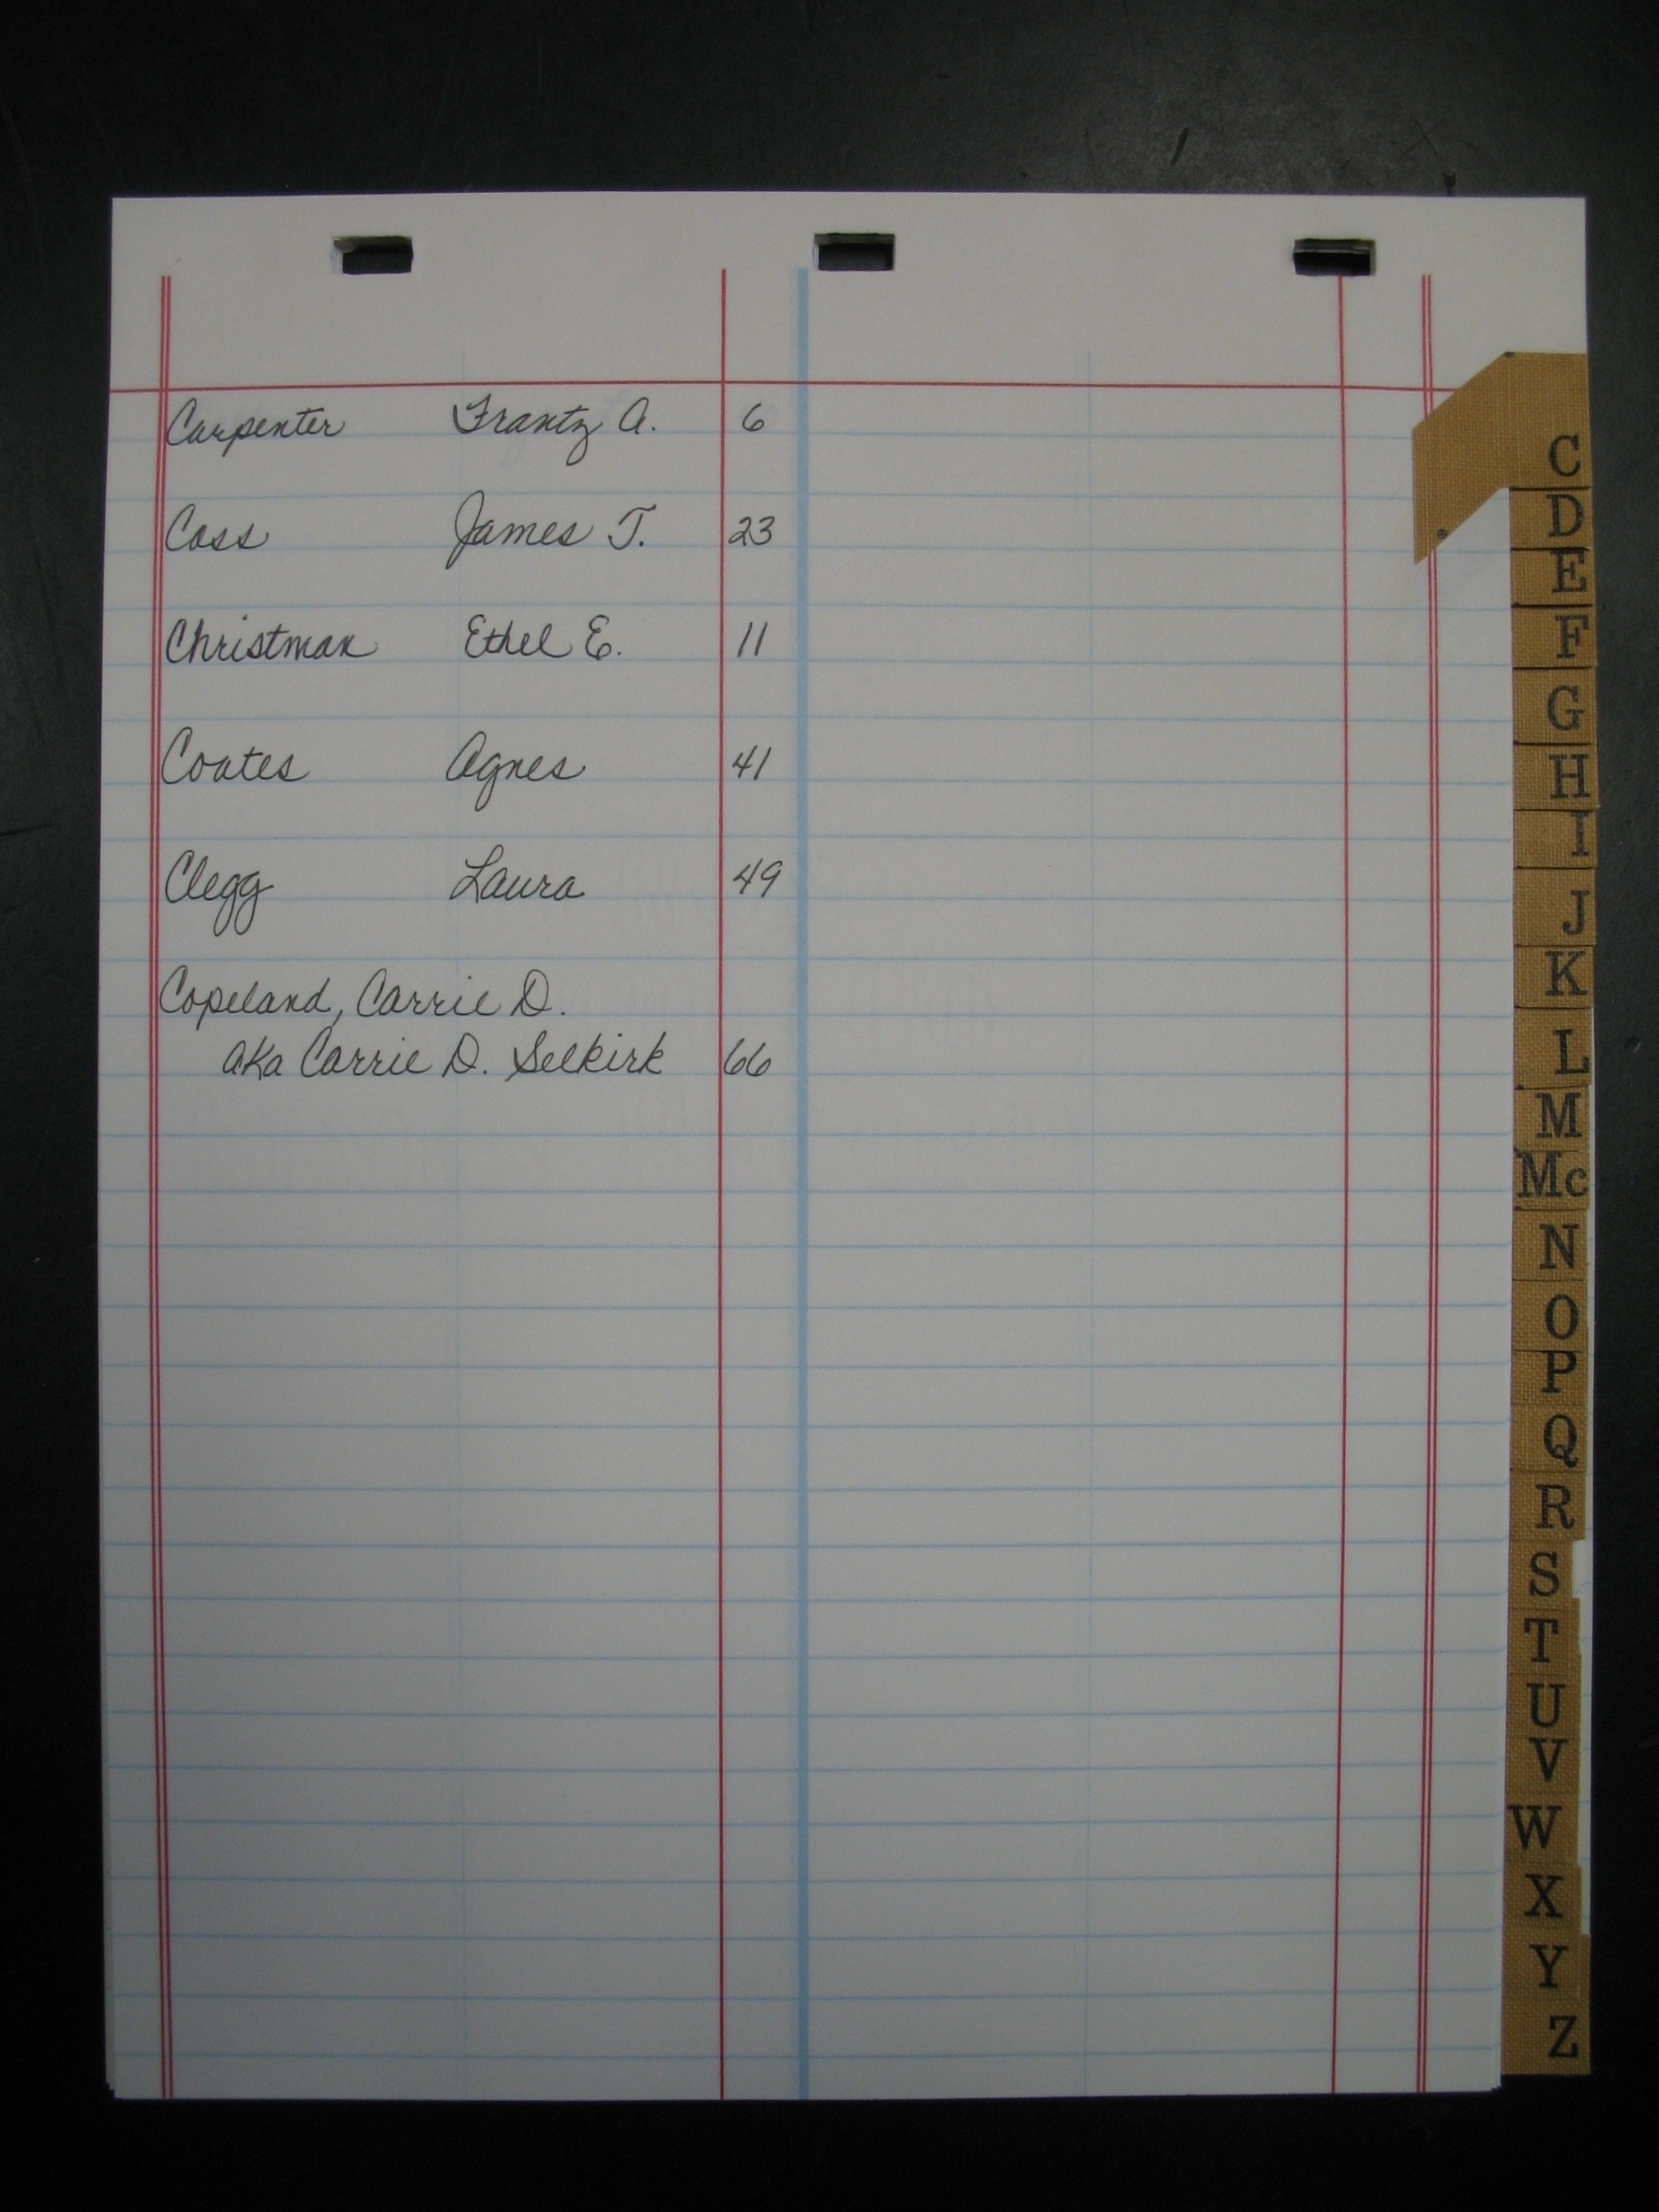 Carpenter Frantz A. 6
Coss James T. 23
Christman Ethel E. 11
Coates Agnes 41
Clegg Laura 49
Copeland, Carrie D.
aka Carrie D. Selkirk 66
C
D
E
F
G
H
I
J
K
L
M
Mc
N
O
P
Q
R
S
T
U
V
W
X
Y
Z